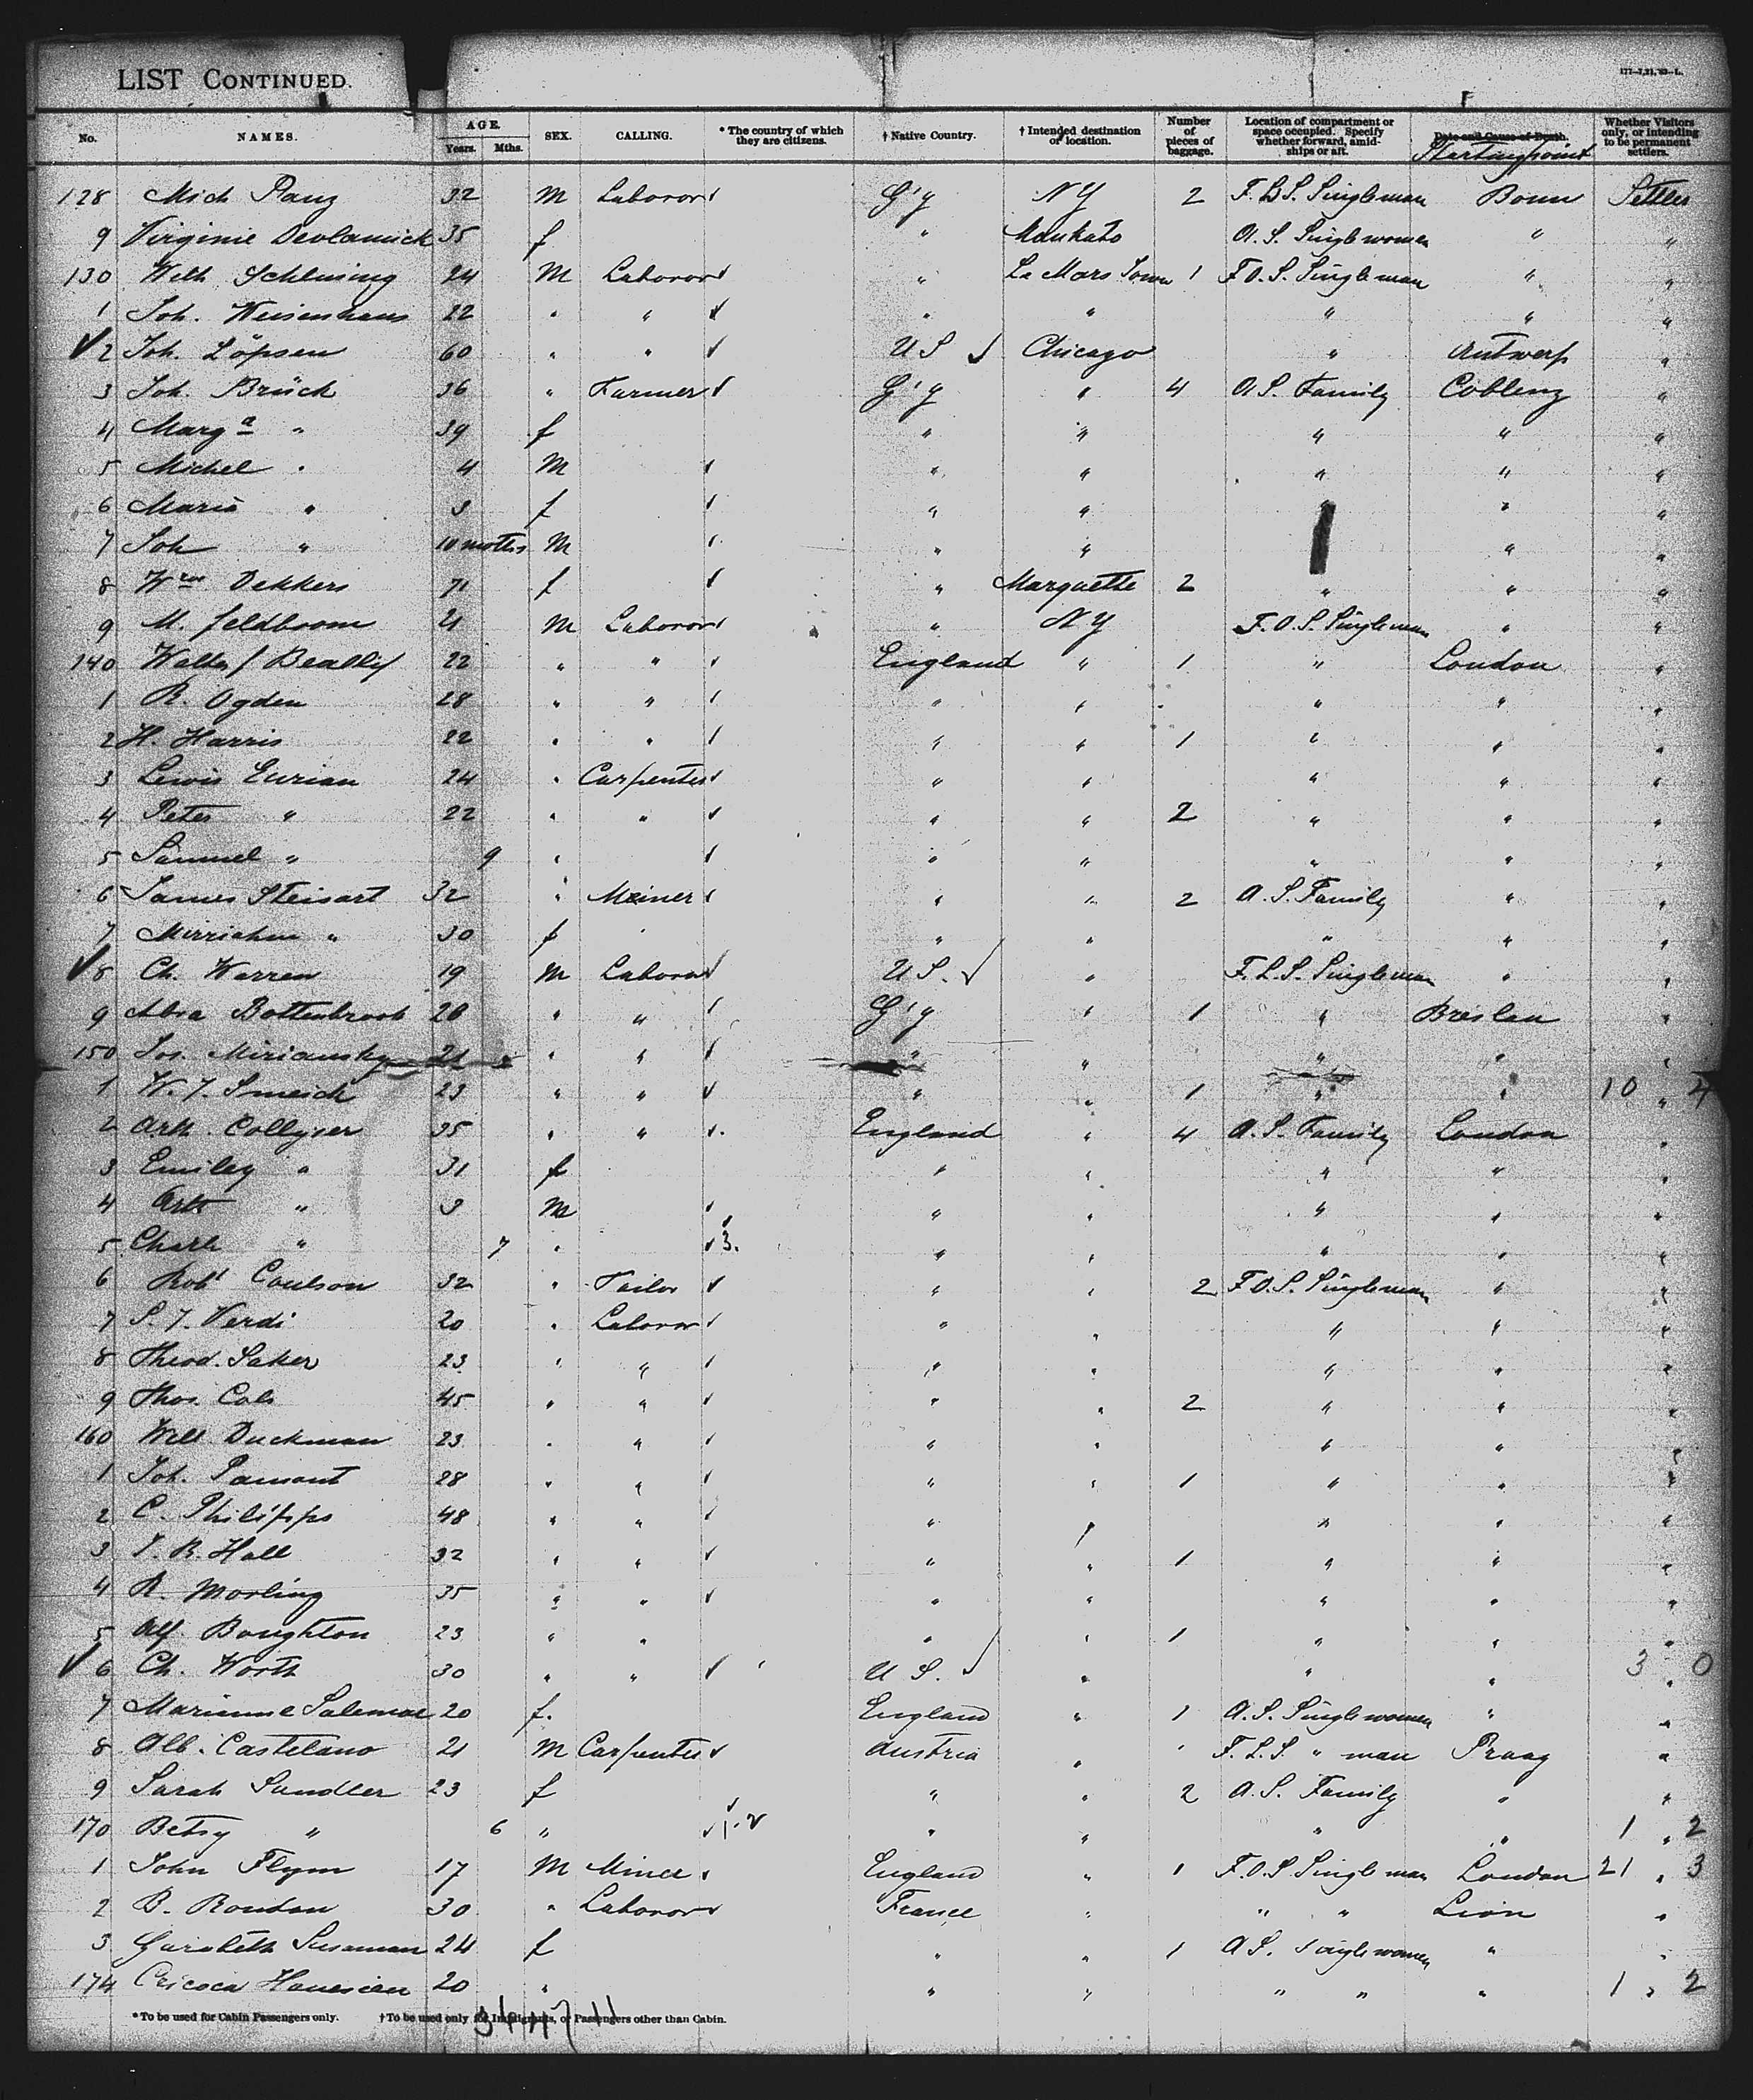 LIST CONTINUED.
177—7,21,'83—L.
No. NAMES. AGE. Years. Mths. SEX. CALLING. * The country of which they are citizens. † Native Country. † Intended destination or location. Number of pieces of baggage. Location of compartment or space occupied. Specify whether forward, amidships or aft. Date and Cause of Death. Starting point Whether Visitors only, or intending to be permanent settlers.
128 Mich 32 M Laboror G'y NY 2 F. B S. Singleman Bonn Settler
9 Virginie 35 f " Mankato A. S. Singlewomen " "
130 Wilh Schlusing 24 M Laboror " Le Mars Iowa 1 F O. S. Singleman " "
1 Joh. Weisenhaus 22 " " " " " " "
2 Joh. Löpsen 60 " " U S Chicago " Antwerp "
3 Joh. Brück 36 " Farmer G'y " 4 A S. Family Coblenz "
4 Marga " 39 f " " " " "
5 Michel " 4 M " " " " "
6 Maria " 3 f " " " "
7 Joh " 10 moths M " " " "
8 Wm Dekkers 71 f " Marquette 2 " " "
9 M. feldboom 21 M Laboror " NY F. O. S. Singleman " "
140 22 " " England " 1 " London "
1 R. Ogden 28 " " " " " " "
2 H. Harris 22 " " " " 1 " " "
3 Lewis Eurian 24 " Carpenter " " " " "
4 Peter " 22 " " " " 2 " " "
5 Samuel " 9 " " " " " "
6 James Steisart 32 " Meiner " " 2 A. S. Family " "
7 Mirriahm " 30 f " " " " "
8 Ch. Warren 19 M Laboror U S. " F. L. S. Singleman " "
9 Bottenbrook 20 " " G'y " 1 " Breslau "
150 Jos. Miriansky 21 " " " " " " "
1 W. J. Smeich 23 " " " " 1 " " 10 " 4
2 Arth. Collyier 35 " " England " 4 A. S. Family London "
3 Emiley " 31 f " " " " "
4 Arth " 3 M " " " " "
5 Charle " 7 " 3. " " " " "
6 Robt Coulson 32 " Tailor " " 2 F O. S. Singleman " "
7 S. J. Verdi 20 " Laboror " " " " "
8 Theod. Saker 23 " " " " " " "
9 Thos. Cole 45 " " " " 2 " " "
160 Will Duckman 23 " " " " " " "
1 Joh. Pamont 28 " " " " 1 " " "
2 C. Philipps 48 " " " " " " "
3 J. R. Hall 32 " " " " 1 " " "
4 R. Morling 35 " " " " " " "
5 Alf. Boughton 23 " " " " 1 " " "
6 Ch. Worth 30 " " U S. " " " 3 " 0
7 Marianne 20 f. England " 1 A. S. Singlewomen " "
8 Alb. Castelano 21 M Carpenter Austria " F. L. S. " man Praag "
9 Sarah Sandler 23 f " " 2 A. S. Family " "
170 Betsy " 6 " 1. " " " " 1 " 2
1 John Flynn 17 M Miner England " 1 F. O. S Singleman London 21 " 3
2 B. Rondon 30 " Laboror France " " " Lion "
3 24 f " " 1 A S. Singlewomen " "
174 20 " " " " " " 1 " 2
* To be used for Cabin Passengers only. † To be used only for Immigrants, or Passengers other than Cabin.